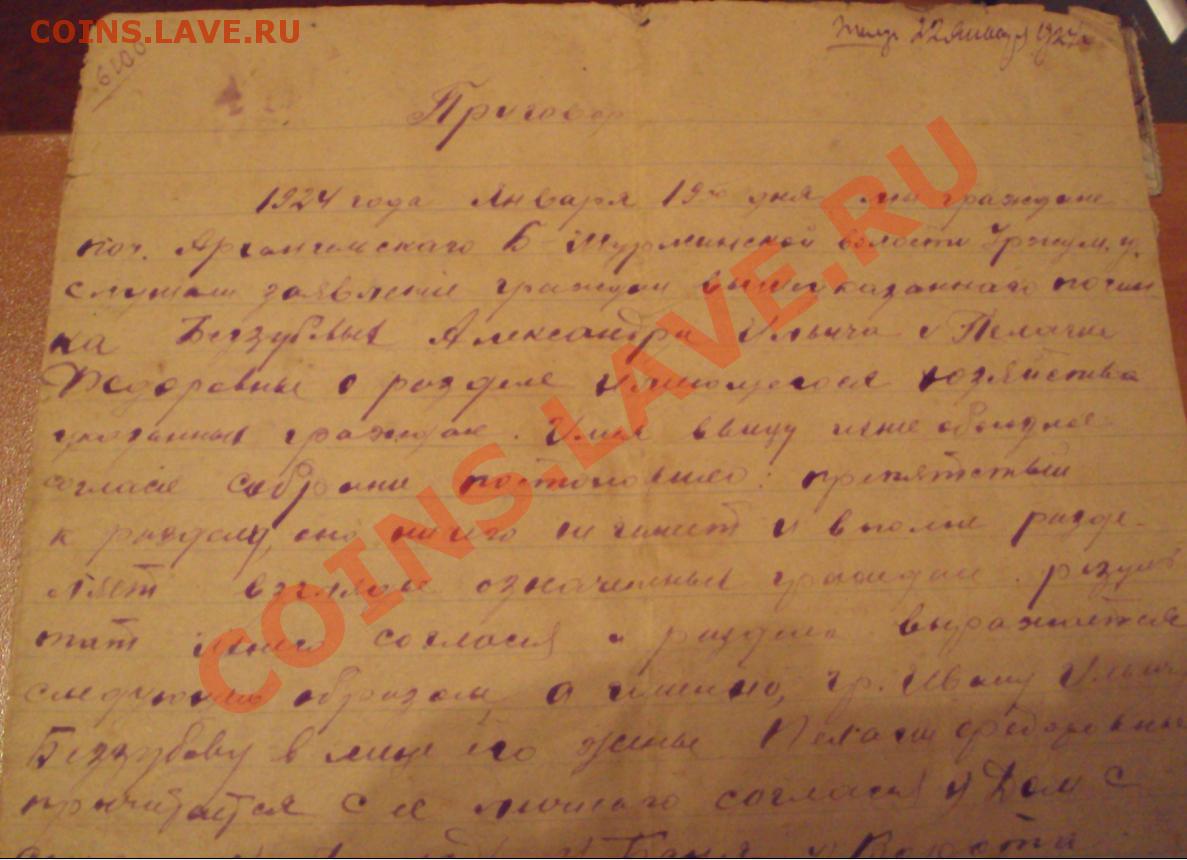 COINS.LAVE.RU
22 Января 1924
0019
Приговор
1924 года Января 19го дня мы граждане
поч. Б-Шурминской волости Уржум. у.
слушали заявление граждан вышеуказаннаго почин
ка Беззубовых Александра Ильича и Пелагии
Федоровны о разделе имеющегося хозяйства
указанных граждан. Имея в виду обоюдное
согласие собрание постановило: препятствий
к разделу, оно не имеет и вполне разде-
ляет взгляды означенных граждан. резуль
тат согласия и раздела выражается
следующим образом, а именно, гр. Ивану Ильичу
Беззубову в лице его жены Пелагии Федоровны
причитается с ея личнаго согласия 1) Дом с
Баня Ворота
COINS.LAVE.RU